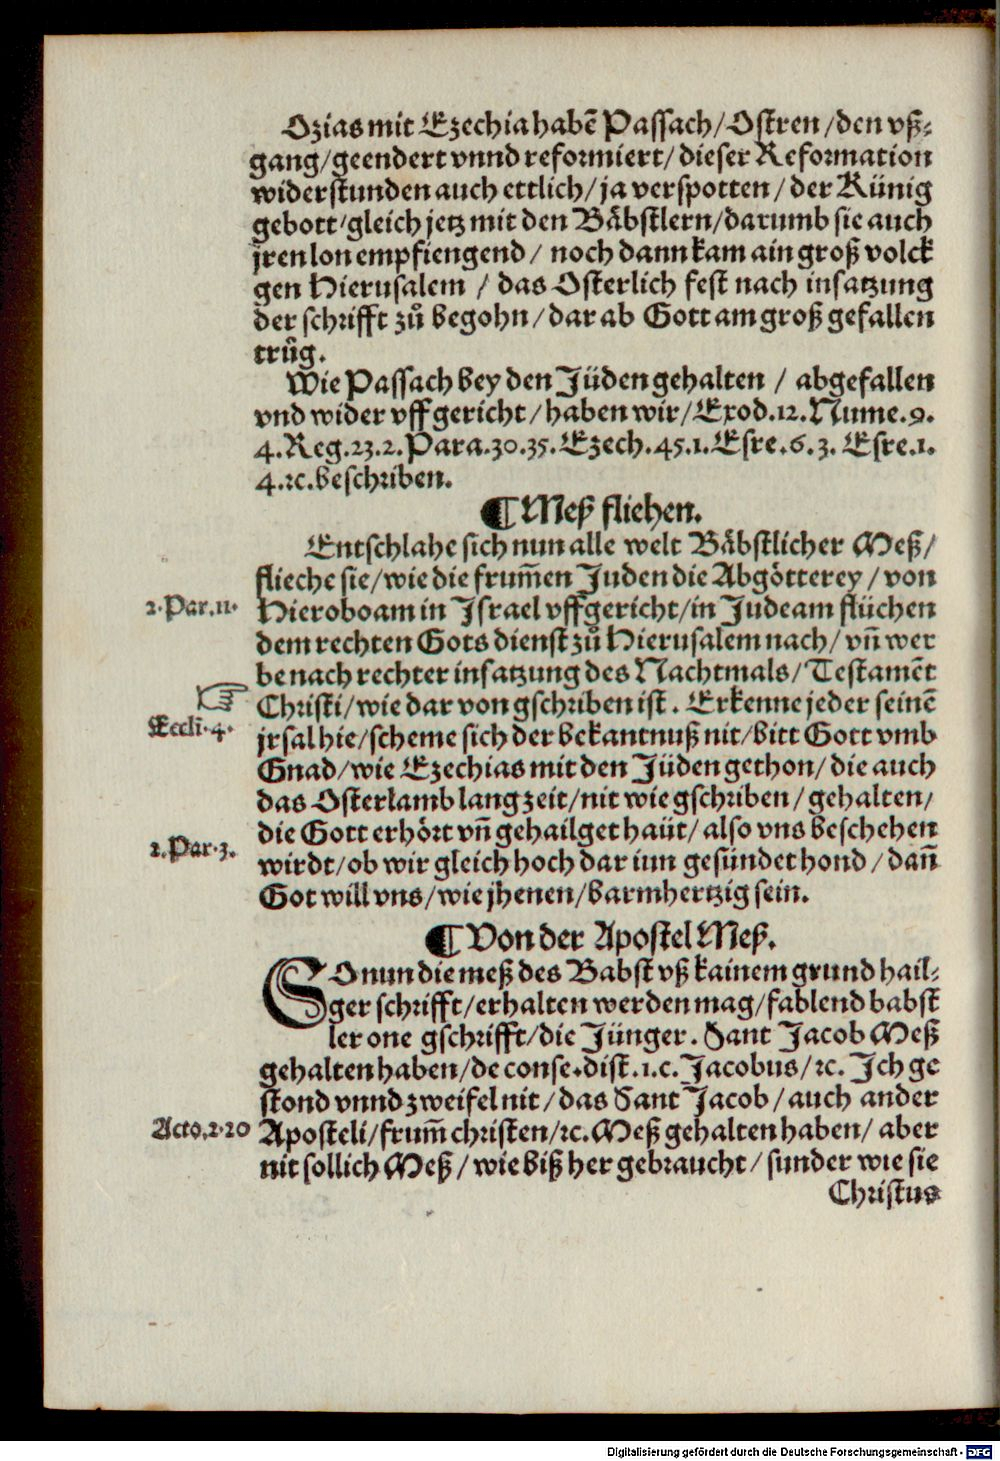 Ozias mit Ezechia habẽ Passach/Ostren/den vß⸗
gang/geendert vnnd reformiert/dieser Reformation
widerstunden auch ettlich/ja verspotten/der Künig
gebott/gleich jetz mit den Bäbstlern/darumb sie auch
jren lon empfiengend/ noch dann kam ain groß volck
gen Hierusalem / das Osterlich fest nach insatzung
der schrifft zů begohn/dar ab Gott am groß gefallen
trůg.
Wie Passach bey den Jüden gehalten / abgefallen
vnd wider vffgericht/haben wir/Exod.12.Nume.9.
4.Reg.23.2.Para.30.35.Ezech.45.1.Esre.6.3. Esre.1.
4.ꝛc.beschriben.
¶ Meß fliehen.
Entschlahe sich nun alle welt Bäbstlicher Meß/
flieche sie/wie die frum̃en Juden die Abgötterey/von
2.Par.11.
Hieroboam in Israel vffgericht/in Judeam flüchen
dem rechten Gots dienst zů Hierusalem nach/vñ wer
be nach rechter insatzung des Nachtmals/Testamẽt
☞
Christi/wie dar von gschriben ist. Erkenne jeder seinẽ
Eccli.4.
jrsal hie/scheme sich der bekantnuß nit/bitt Gott vmb
Gnad/wie Ezechias mit den Jüden gethon/die auch
das Osterlamb lang zeit/nit wie gschriben/gehalten/
die Gott erhört vñ gehailget haüt/also vns beschehen
2.Par.3.
wirdt/ob wir gleich hoch dar inn gesündet hond/dañ
Got will vns/wie jhenen/barmhertzig sein.
¶ Von der Apostel Meß.
SO nun die meß des Babst vß kainem grund hail⸗
ger schrifft/erhalten werden mag/fablend babst
ler one gschrifft/die Jünger. Sant Jacob Meß
gehalten haben/de conse.dist.1.c. Jacobus/ꝛc. Ich ge
stond vnnd zweifel nit/das Sant Jacob/auch ander
Acto.2.20
Aposteli/frum̃ christen/ꝛc.Meß gehalten haben/aber
nit sollich Meß/wie biß her gebraucht/sunder wie sie
Christus
Digitalisierung gefördert durch die Deutsche Forschungsgemeinschaft - DFG